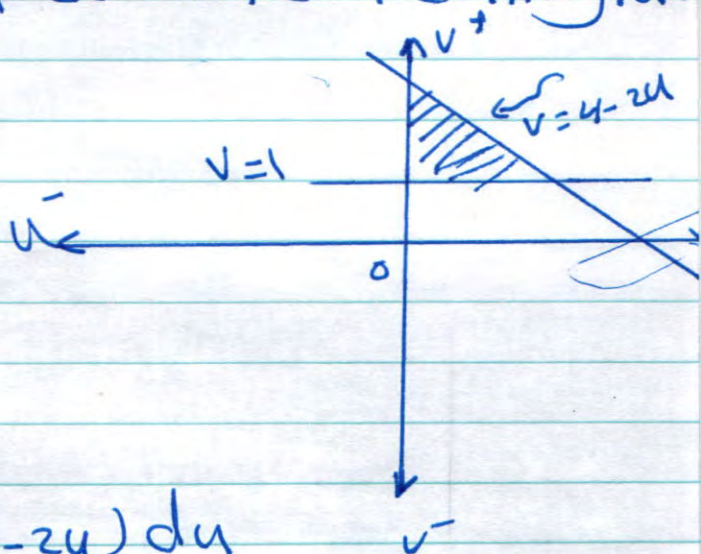 v+
v=4-2u
v=1
u-
0
-2u) du
v-